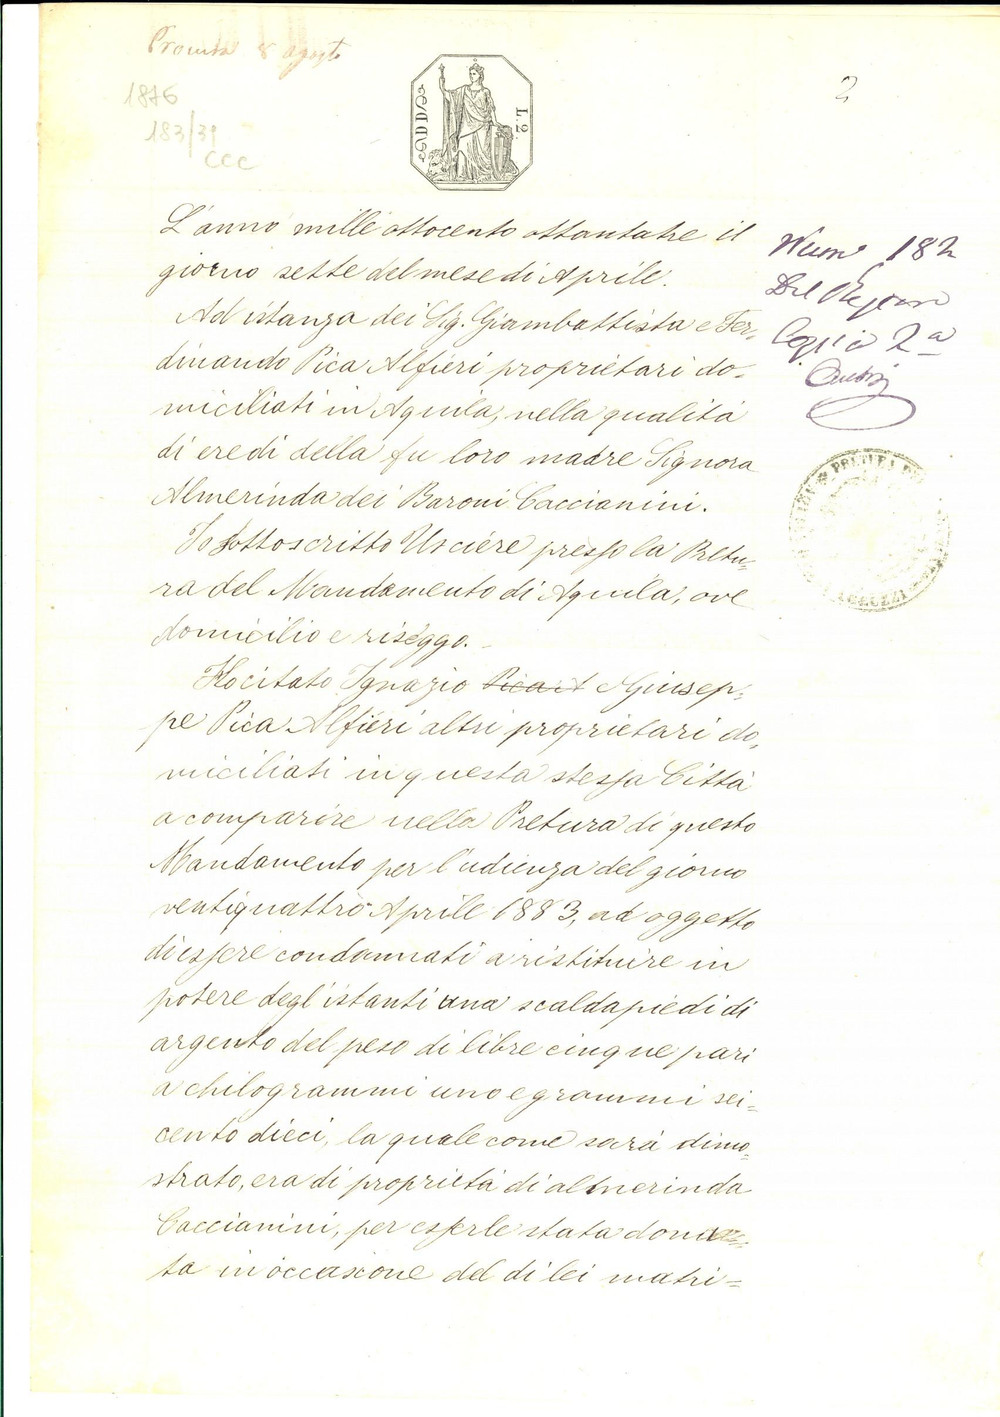 2
1876
183/39
CCC
L. 2.
L'anno mille ottocento ottantatre il
giorno sette del mese di Aprile.
Ad istanza dei Sig. Giambattista e Fer-
dinando Pica Alfieri proprietari do-
miciliati in Aquila, nella qualità
di eredi della fu loro madre Signora
Almerinda dei Baroni Caccianini.
Io sottoscritto Usciere presso la Pretu-
ra del Mandamento di Aquila, ove
domicilio e riseggo.
Ho citato Ignazio Pica A e Giusep-
pe Pica Alfieri altri proprietari do-
miciliati in questa stessa Città
a comparire nella Pretura di questo
Mandamento per l'udienza del giorno
ventiquattro Aprile 1883, ad oggetto
di essere condannati a ristituire in
potere degl'istanti una scaldapiedi di
argento del peso di libre cinque pari
a chilogrammi uno e grammi sei-
cento dieci, la quale come sarà dimo-
strato, era di proprietà di Almerinda
Caccianini, per esserle stata dona-
ta in occasione del di lei matri-
Num 182
Del Reperio
Copia 2a
PRETURA